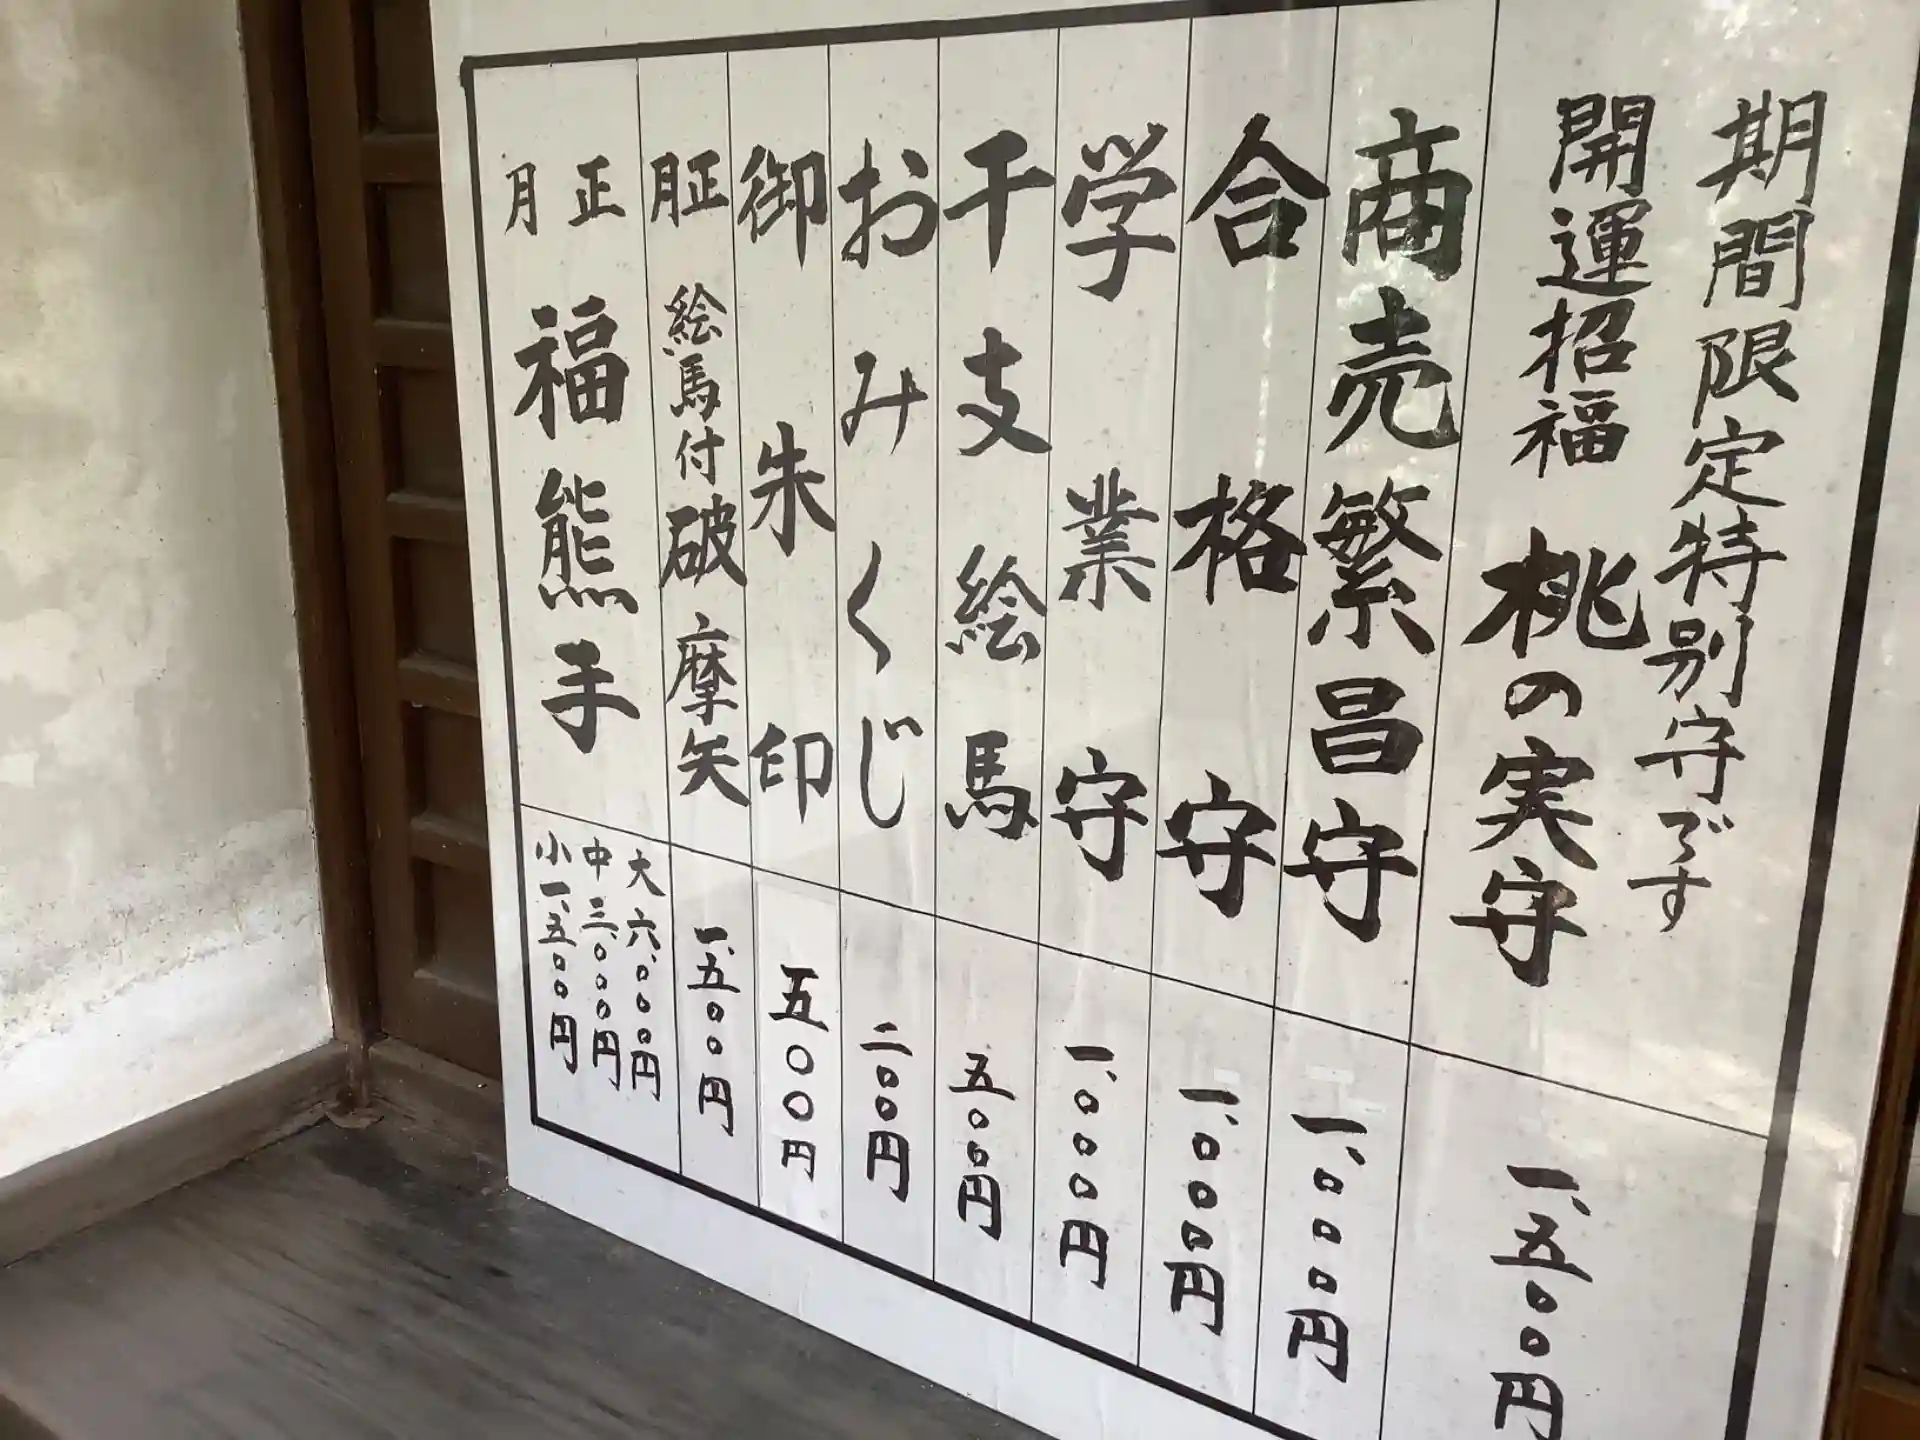 期間限定特別守です
開運招福 桃の実守 一、五〇〇円
商売繁昌守 一、〇〇〇円
合格守 一、〇〇〇円
学業守 一、〇〇〇円
干支絵馬 五〇〇円
おみくじ 二〇〇円
御朱印 五〇〇円
正月 絵馬付破摩矢 一、五〇〇円
正月 福熊手
大 六、〇〇〇円
中 三、〇〇〇円
小 一、五〇〇円